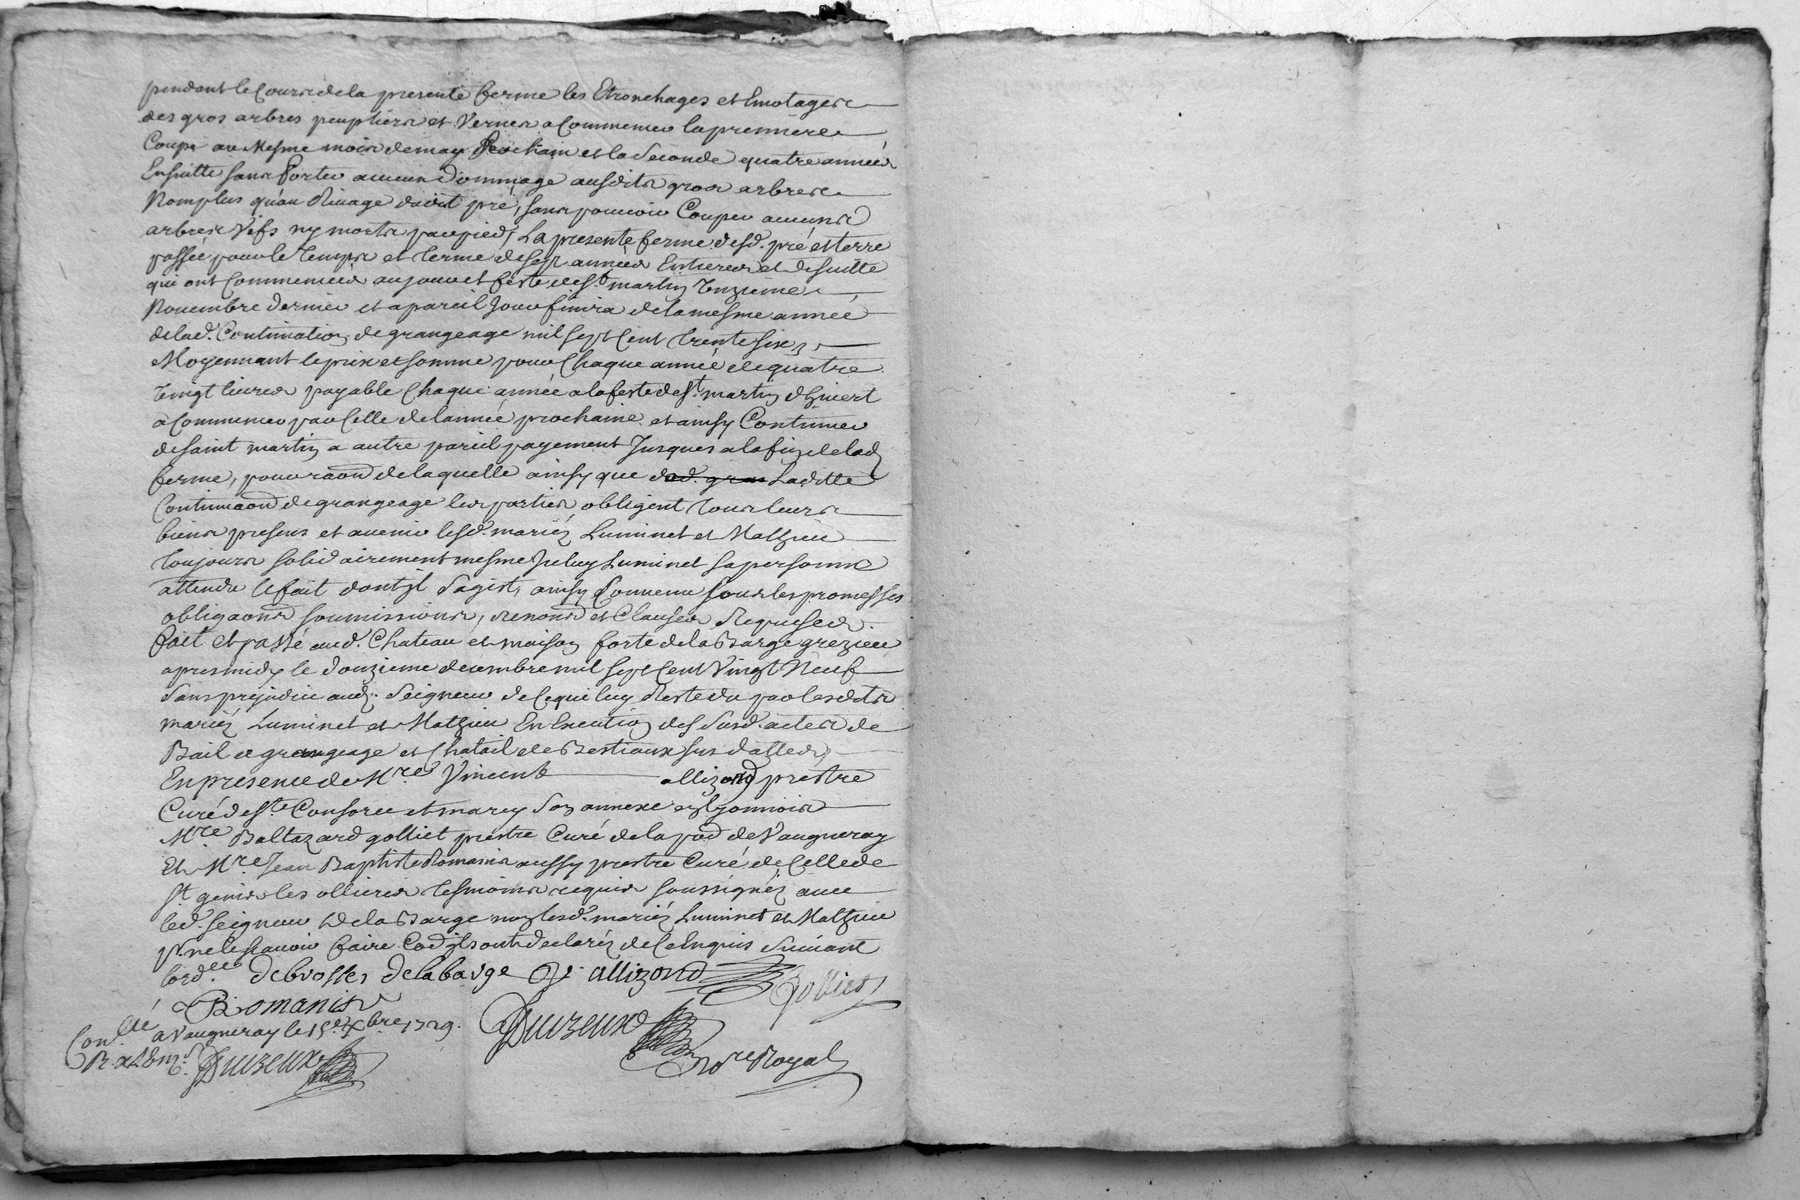 pendant le cours de la presente ferme les Etronchages et Emotages
des gros arbres peupliers et Vernes a Commencer la premiere
Coupe au Mesme mois de may Prochain et la Seconde quatre années
Ensuitte sans Porter aucun Dommage ausdits gros arbres
Nomplus qu'au Rivage dudit pré, sans pouvoir Couper aucuns
arbres Vifs ny morts par pied, La presente ferme desd. pré et terre
passée pour le Temps et terme de sept années Entieres et de suitte
qui ont Commencées au jour et feste de St. martin Onzieme
Novembre dernier et a pareil Jour finira de la mesme année
de lad. Continuation de grangeage mil sept Cent trente six,
Moyennant le prix et somme pour Chaque année de quatre
Vingt livres payable Chaque année a la feste de St. martin d'hivert
a Commencer par Celle de l'année prochaine et ainsy Continuer
de saint martin a autre pareil payement Jusques a la fin de lad.
ferme, pour raon de laquelle ainsy que Laditte
Continuaon de grangeage les parties obligent tous leurs
biens presens et avenir lesd. mariéz Luminet et Mathieu
toujours solidairement mesme Luminet sa personne
attendu le fait dont jl s'agist, ainsy Convenu sous les promesses
obligaons soumissions, renons et Clauses Requises.
fait et passé aud. Chateau et maison forte de la Barge grezieu
apres midy le douzieme decembre mil sept Cent Vingt Neuf
Sans prejudice aud. Seigneur de Ce qui luy Reste du par lesdits
mariéz Luminet et Mathieu En Execution des Susd. actes de
Bail a grangeage et Chatail de Bestiaux sus dattés,
En presence de Mre Vincent allizond prestre
Curé de Ste Consorce et marcy Son annexe en lyonnois
Mre. Baltazard golliet prestre Curé de la pod de Vaugneray
Et Mre. Jean Baptiste Romanis aussy prestre Curé de Celle de
St. genis les ollieres tesmoins requis soussignéz avec
led. seigneur De la Barge non lesd. mariéz Luminet et Mathieu
pr. ne le sçavoir faire Co. jls ont declaréz de Ce Enquis suivant
lord.ce debrosses delabarge V. allizond Golliet
Romanis
Con.llé a Vaugneray le 15e. Xbre. 1729. Duizeux
R. Duizeux Nore Royal